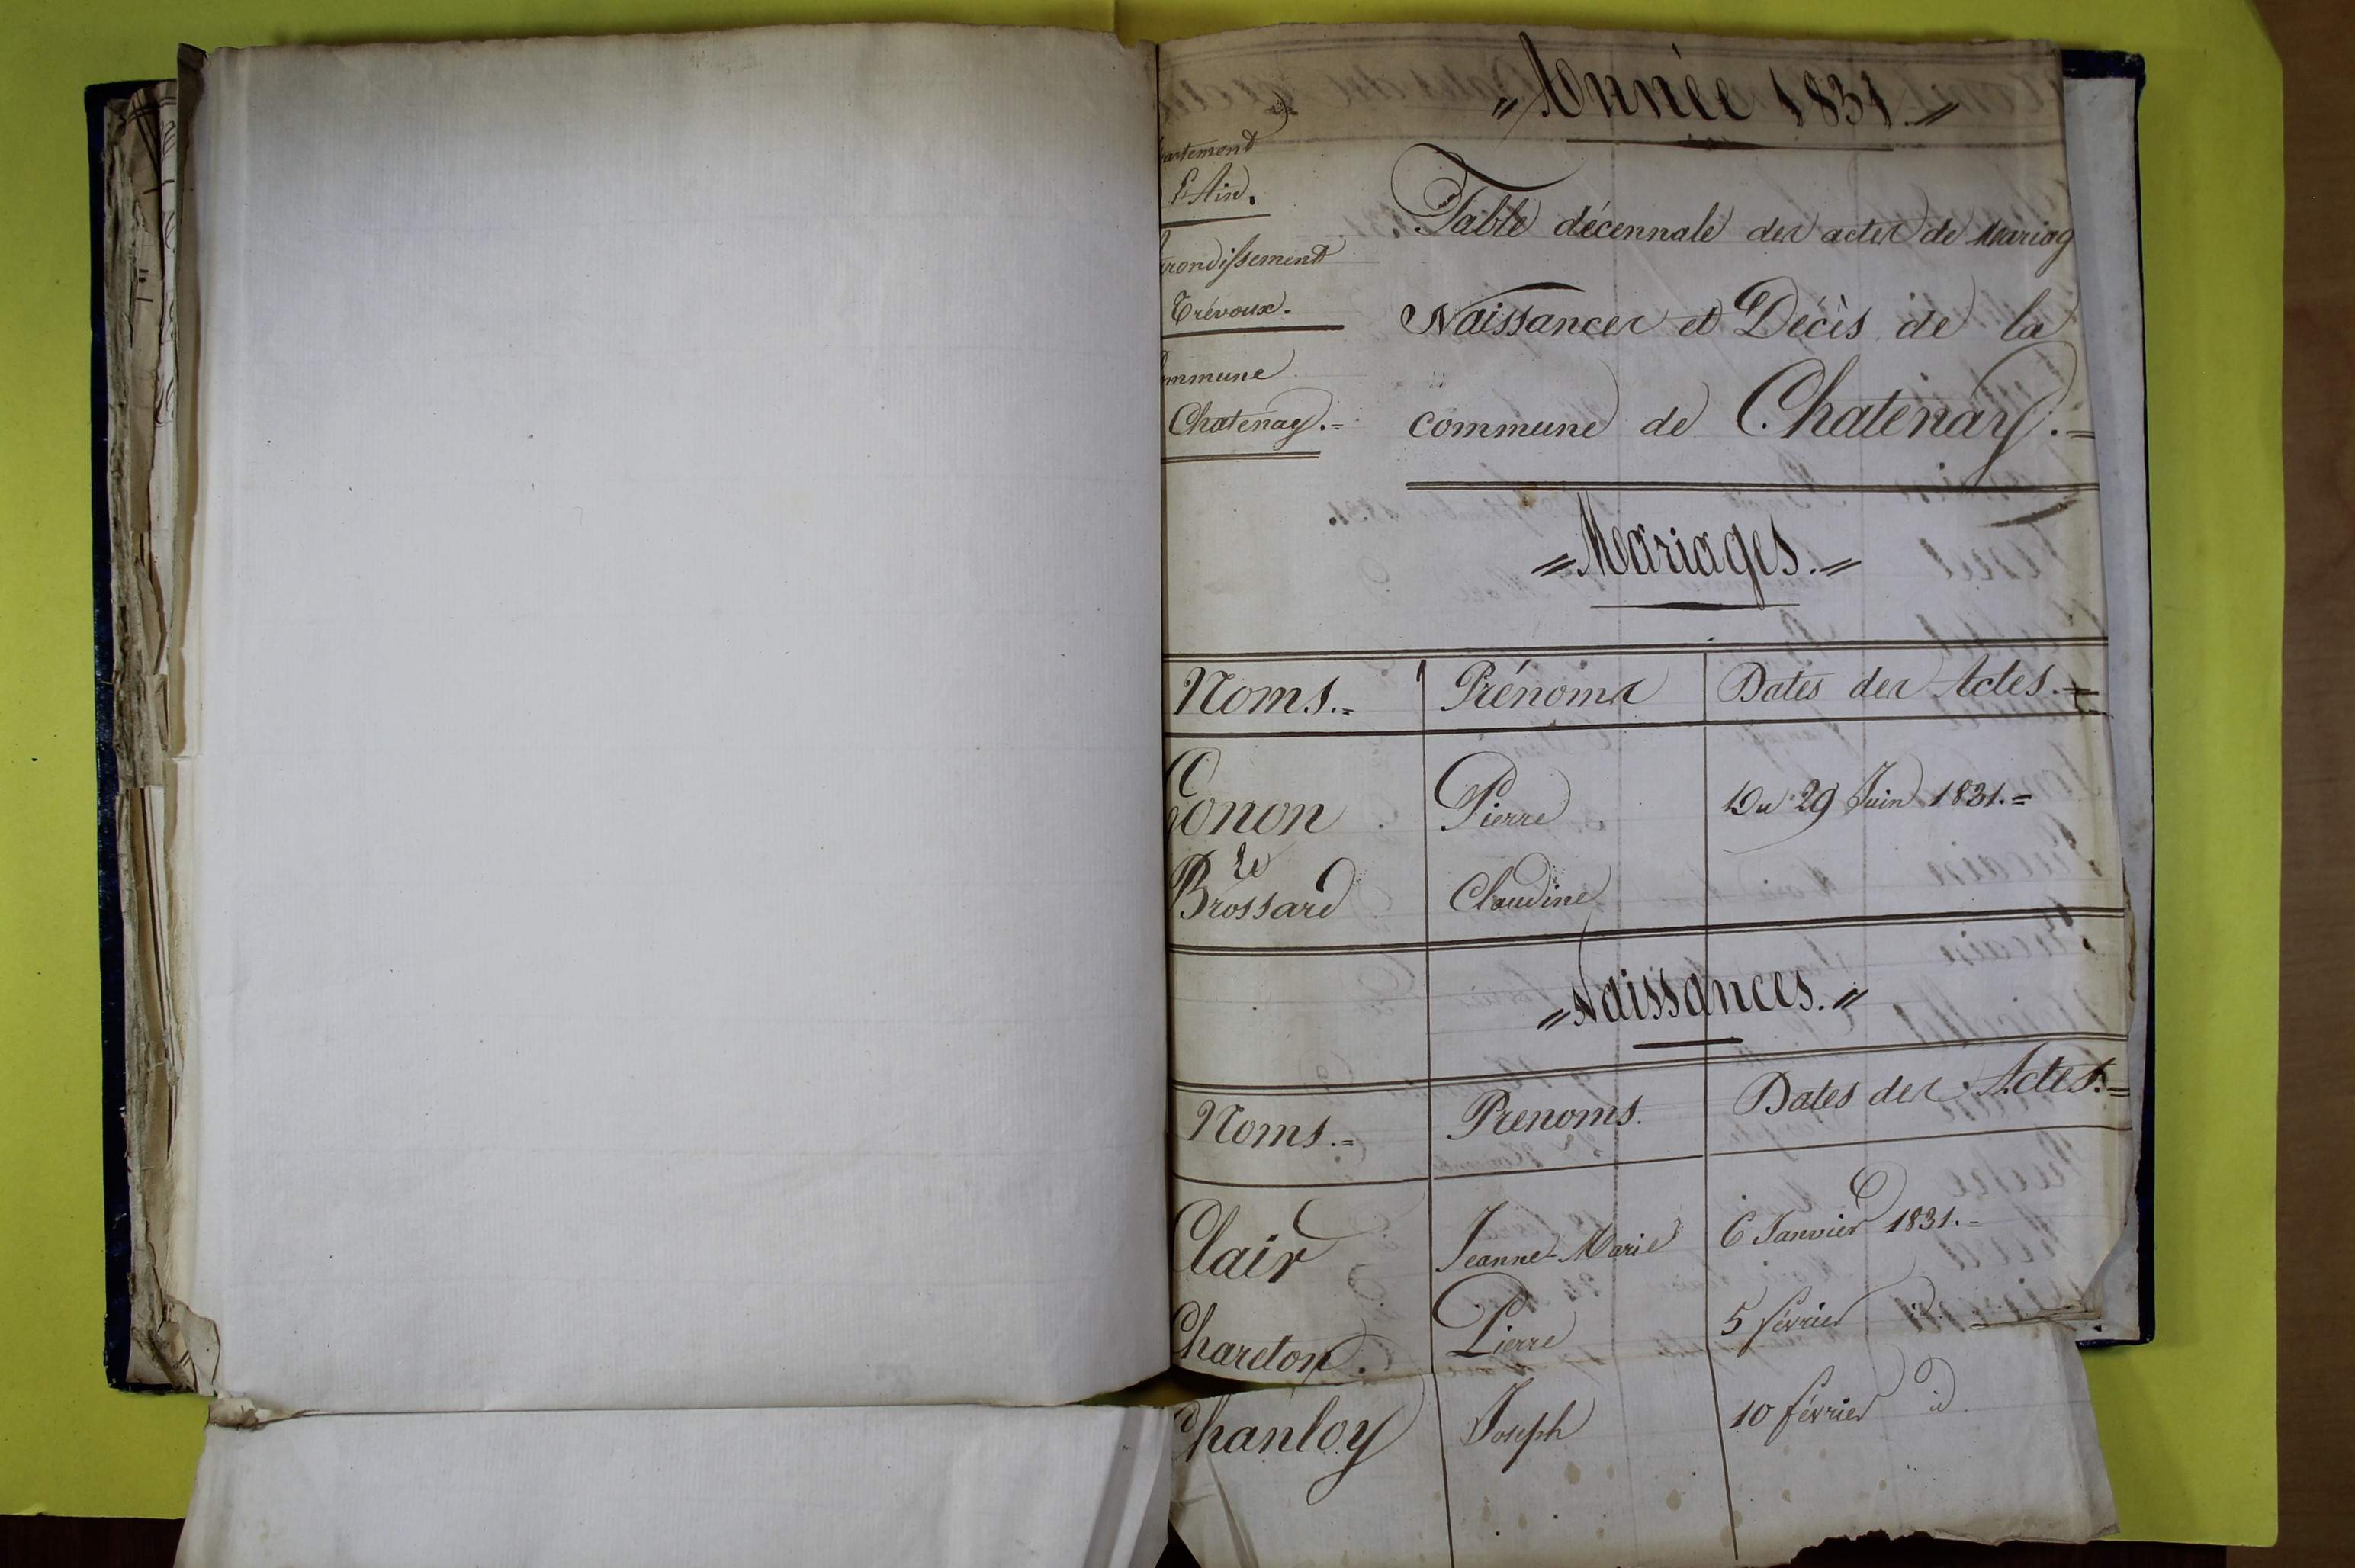 „ Année 1831. „
artement
L'Ain.
rondissement
Trévoux.
ommune
Chatenay.=
Table décennale des actes de Mariag
Naissances et Décès de la
commune de Chatenay.=
= Mariages. =
Noms.= Prénoms Dates des Actes.=
Gonon Pierre Du 29 Juin 1831.=
et
Brossard Claudine
= Naissances. =
Noms.= Prenoms. Dates des Actes.=
Clair Jeanne-Marie 6 Janvier 1831.=
Chareton. Pierre 5 février
Chanloy Joseph 10 février id